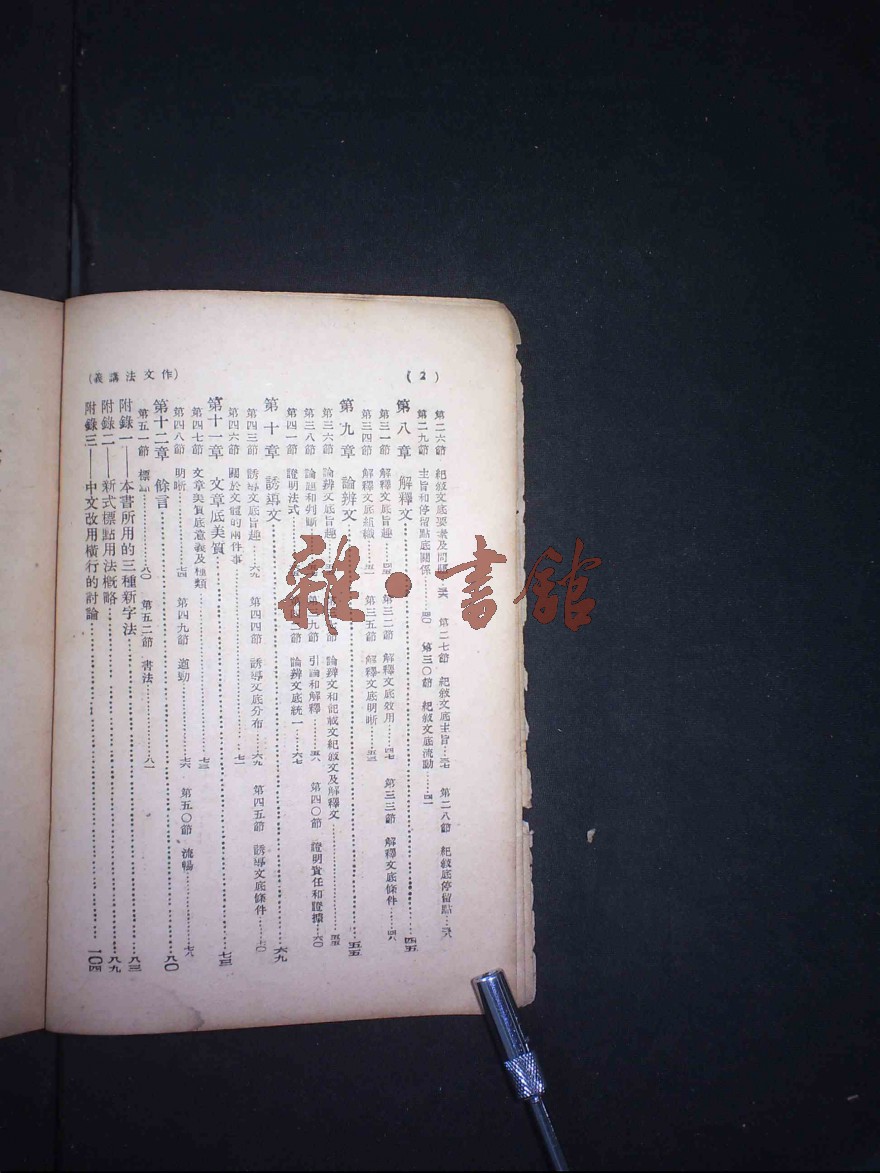 (作文法講義)
(2)
第二六節 紀敍文底要素及問題
第二七節 紀敍文底主旨……三七
第二八節 紀敍底停留點……三八
第二九節 主旨和停留點底關係……四〇
第三〇節 紀敍文底流動……四一
第八章 解釋文……四五
第三一節 解釋文底旨趣……四五
第三二節 解釋文底效用……四七
第三三節 解釋文底條件……四八
第三四節 解釋文底組織……五一
第三五節 解釋文底明晰……五三
第九章 論辨文……五五
第三六節 論辨文底旨趣
論辨文和記載文紀敍文及解釋文……五五
第三八節 論題和判斷
九節 引論和解釋……五八
第四〇節 證明責任和證據……六〇
第四一節 證明法式
論辨文底統一……六七
第十章 誘導文……六九
第四三節 誘導文底旨趣……六九
第四四節 誘導文底分布……六九
第四五節 誘導文底條件……七〇
第四六節 關於文體的兩件事……七一
第十一章 文章底美質……七三
第四七節 文章美質底意義及種類……七三
第四八節 明晰……七四
第四九節 遒勁……七六
第五〇節 流暢……七八
第十二章 餘言……八〇
第五一節 標……八〇
第五二節 書法……八一
附錄一——本書所用的三種新字法……八三
附錄二——新式標點用法概略……八九
附錄三——中文改用橫行的討論……一〇四
雜·書館